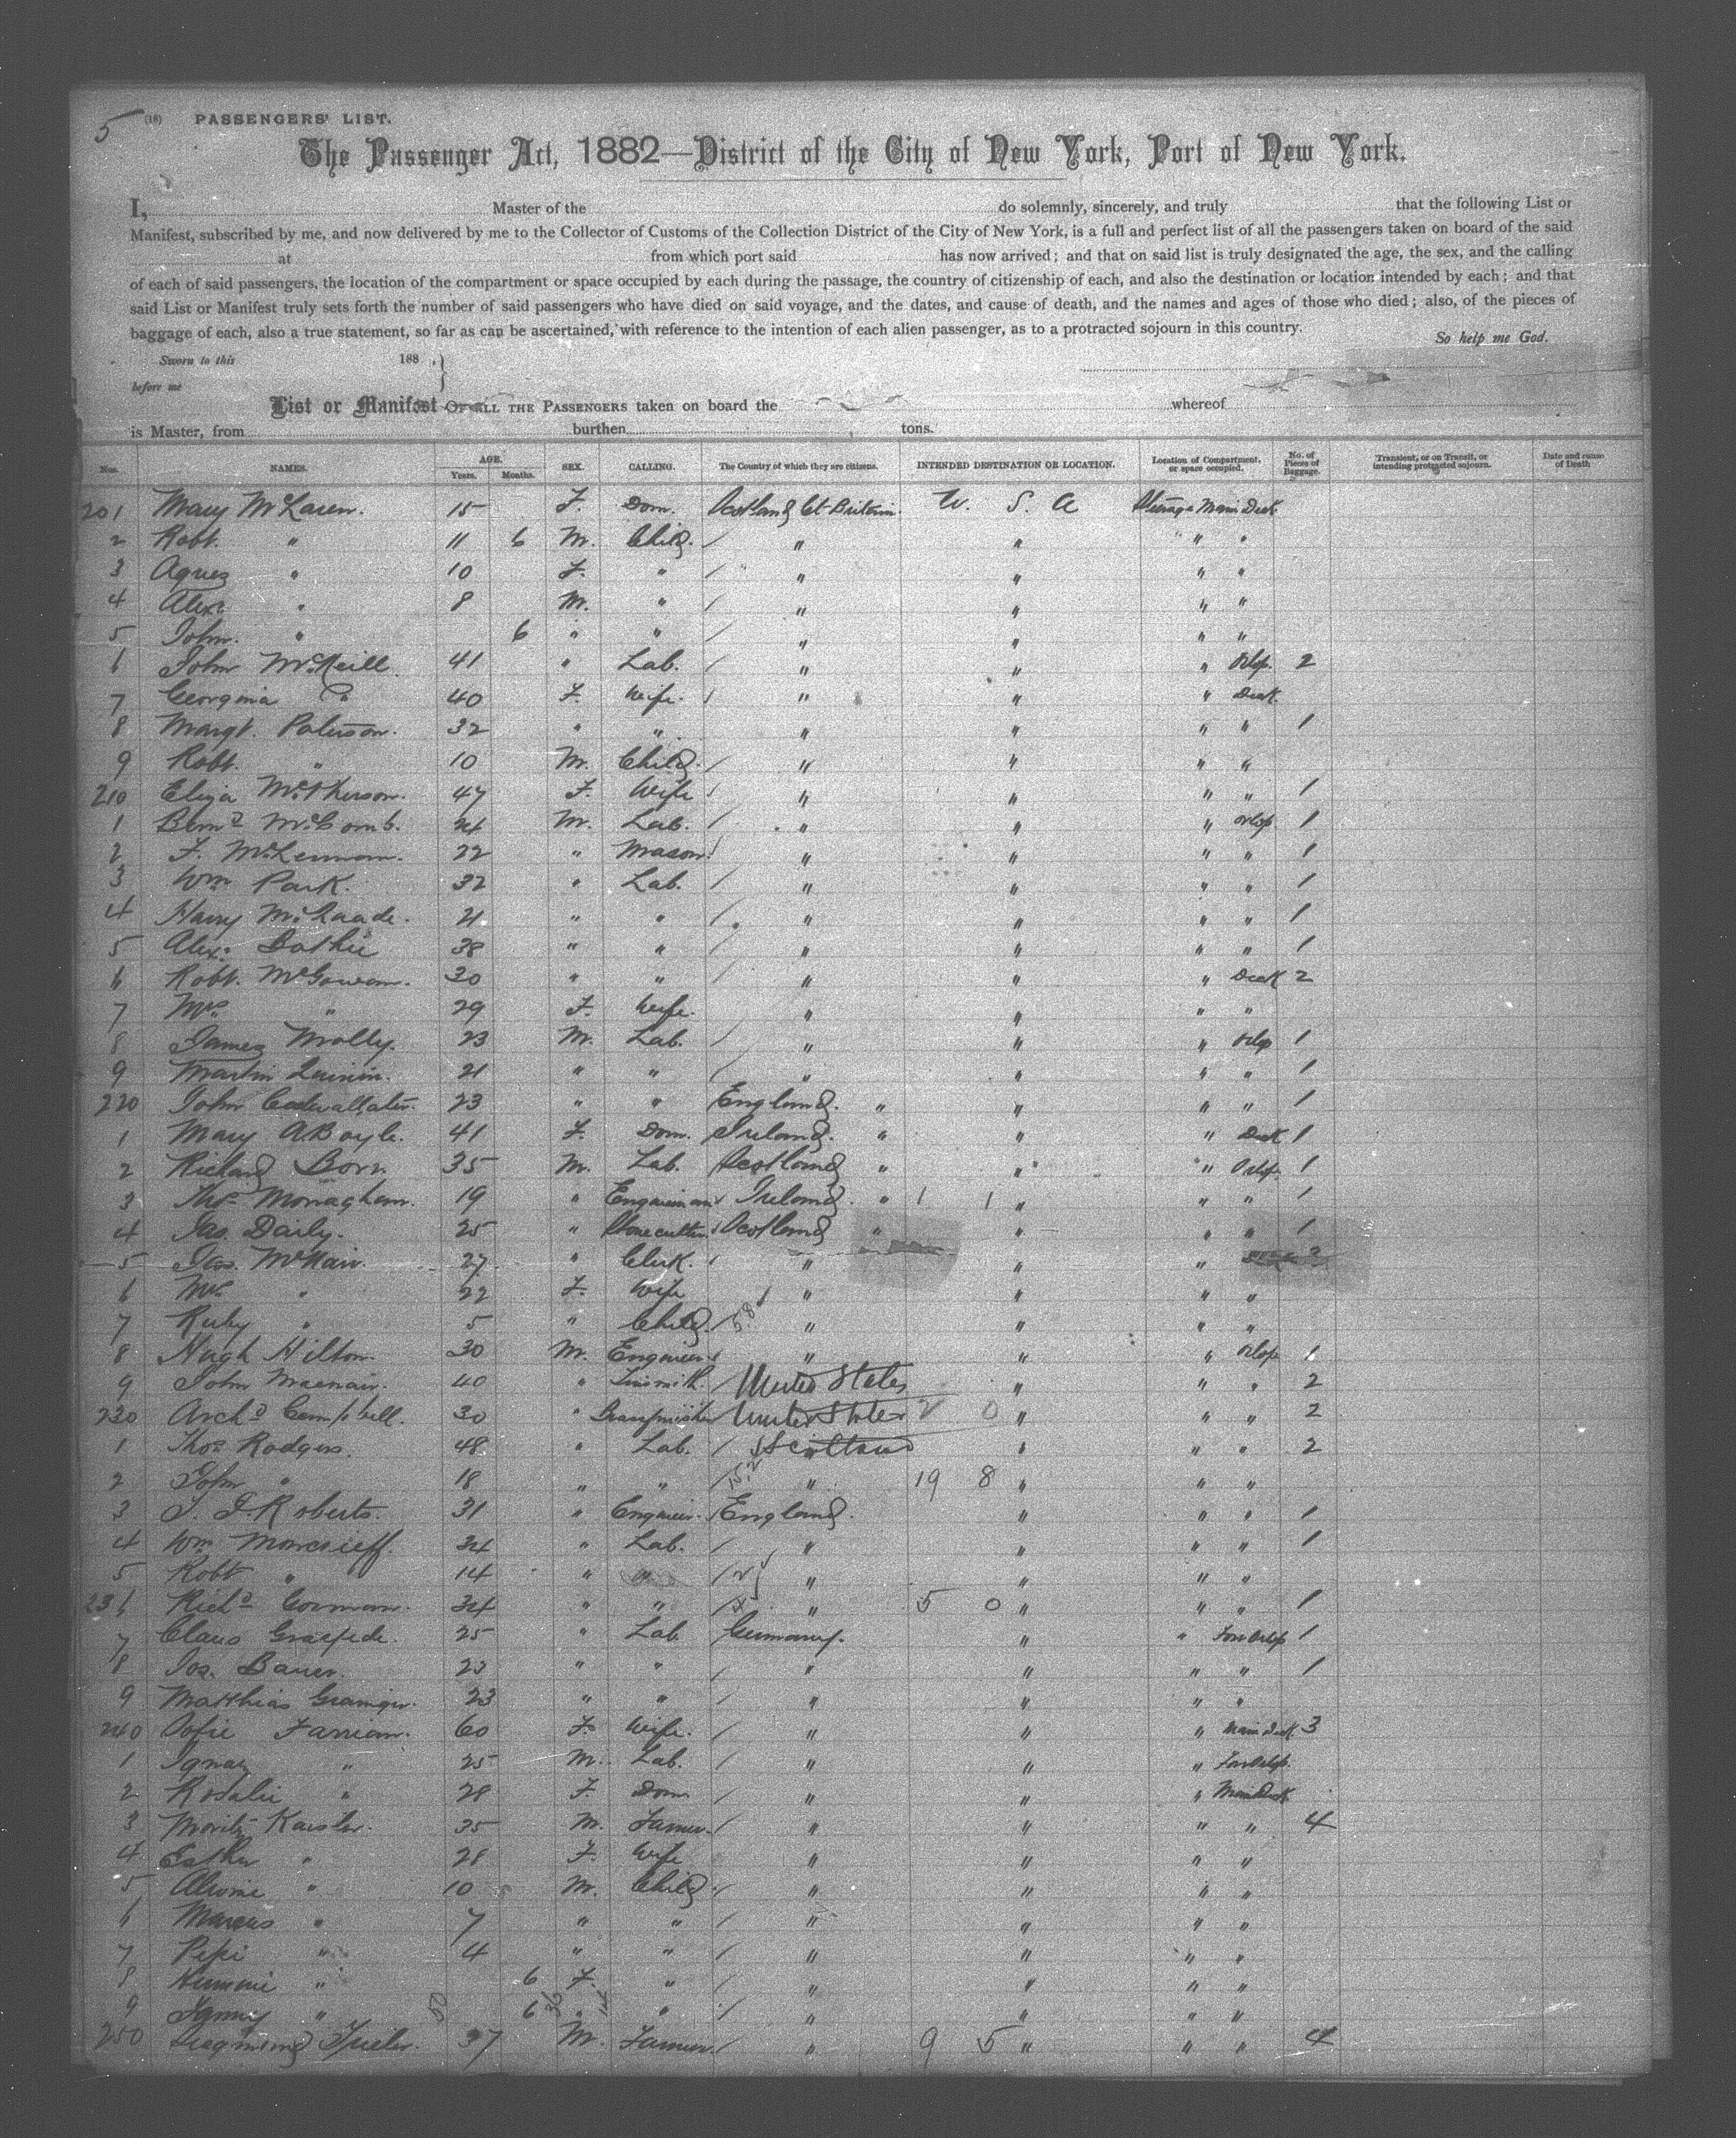 5
(18) PASSENGERS' LIST.
The Passenger Act, 1882—District of the City of New York, Port of New York.
I, Master of the do solemnly, sincerely, and truly that the following List or
Manifest, subscribed by me, and now delivered by me to the Collector of Customs of the Collection District of the City of New York, is a full and perfect list of all the passengers taken on board of the said
at from which port said has now arrived; and that on said list is truly designated the age, the sex, and the calling
of each of said passengers, the location of the compartment or space occupied by each during the passage, the country of citizenship of each, and also the destination or location intended by each; and that
said List or Manifest truly sets forth the number of said passengers who have died on said voyage, and the dates, and cause of death, and the names and ages of those who died; also, of the pieces of
baggage of each, also a true statement, so far as can be ascertained, with reference to the intention of each alien passenger, as to a protracted sojourn in this country.
So help me God.
Sworn to this 188 .}
before me
List or Manifest OF ALL THE PASSENGERS taken on board the whereof
is Master, from burthen tons.
Nos. NAMES. AGE. Years. Months. SEX. CALLING. The Country of which they are citizens. INTENDED DESTINATION OR LOCATION. Location of Compartment, or space occupied. No. of Pieces of Baggage. Transient, or on Transit, or intending protracted sojourn. Date and cause of Death
201 Mary McLaren. 15 F. Dom. Scotland Gt Britain. U. S. A Steerage Main Deck
2 Robt. " 11 6 M. Child. / " " " "
3 Agnes " 10 F. " / " " " "
4 Alexr " 8 M. " / " " " "
5 John. " 6 " " / " " " "
6 John McNeill. 41 " Lab. / " " " Orlop. 2
7 Georgina Do 40 F. Wife. / " " " Deck
8 Margt. Paterson. 32 " " " " " " 1
9 Robt. " 10 M. Child. / " " " "
210 Eliza McPherson. 47 F. Wife / " " " " 1
1 Bernd McComb. 21 M. Lab. / " " " Orlop. 1
2 F. McLennan. 22 " Mason. / " " " " 1
3 Wm Park. 32 " Lab. / " " " " 1
4 Harry 21 " " / " " " " 1
5 Alexr Bathie 38 " " / " " " " 1
6 Robt. McGowan. 30 " " / " " " Deck 2
7 Mrs " 29 F. Wife. " " " "
8 James Molly. 23 M. Lab. / " " " Orlop 1
9 Martin 21 " " / " " " " 1
220 John Cadwallater. 23 " " England. " " " " 1
1 Mary A Boyle. 41 F. Dom. Ireland. " " " Deck 1
2 Richard Born 35 M. Lab. Scotland " " " Orlop. 1
3 Thos Monaghan. 19 " Engineman Ireland. " 1 1 " " " 1
4 Jas. Daily. 25 " Stonecutter. Scotland " " " " 1
5 Jas. McNair. 27 " Clerk. / " " "
6 Mrs " 22 F. Wife " " " "
7 Ruby " 5 " Child. / " " " "
8 Hugh Hilton. 30 M. Engineer / " " " Orlop 1
9 John Macnair. 40 " Tinsmith. / United States " " " 2
230 Archd Campbell. 30 " Brassfinisher United States 2 0 " " " 2
1 Thos Rodgers. 48 " Lab. / Scotland " " " 2
2 John " 18 " " / " 19 8 " " "
3 J. J. Roberts. 31 " Engineer. England. " " " 1
4 Wm Moncrieff. 34 " Lab. / " " " " 1
5 Robt " 14 " " / " " " "
236 Richd Gorman. 34 " " / " 5 0 " " " 1
7 Claus Graefede. 25 " Lab Germany. " " Fore Orlop 1
8 Jos. Bauer. 23 " " / " " " " 1
9 Matthias 23 " " / " " " "
240 Sofie 60 F. Wife. / " " " Main Deck 3
1 Ignaz " 25 M. Lab. / " " " Fore Orlop.
2 Rosalie " 28 F. Dom / " " " Main Deck
3 Moritz Kaester. 35 M. Farmer. / " " " " 4
4 Esther " 28 F. Wife " " " "
5 " 10 M. Child. / " " " "
6 Marcus " 7 " " / " " " "
7 Pepi " 4 " " / " " " "
8 " 6 F. " / " " " "
9 Fanny " 6 " " / " " " "
250 37 M. Farmer. / " 9 5 " " " 4